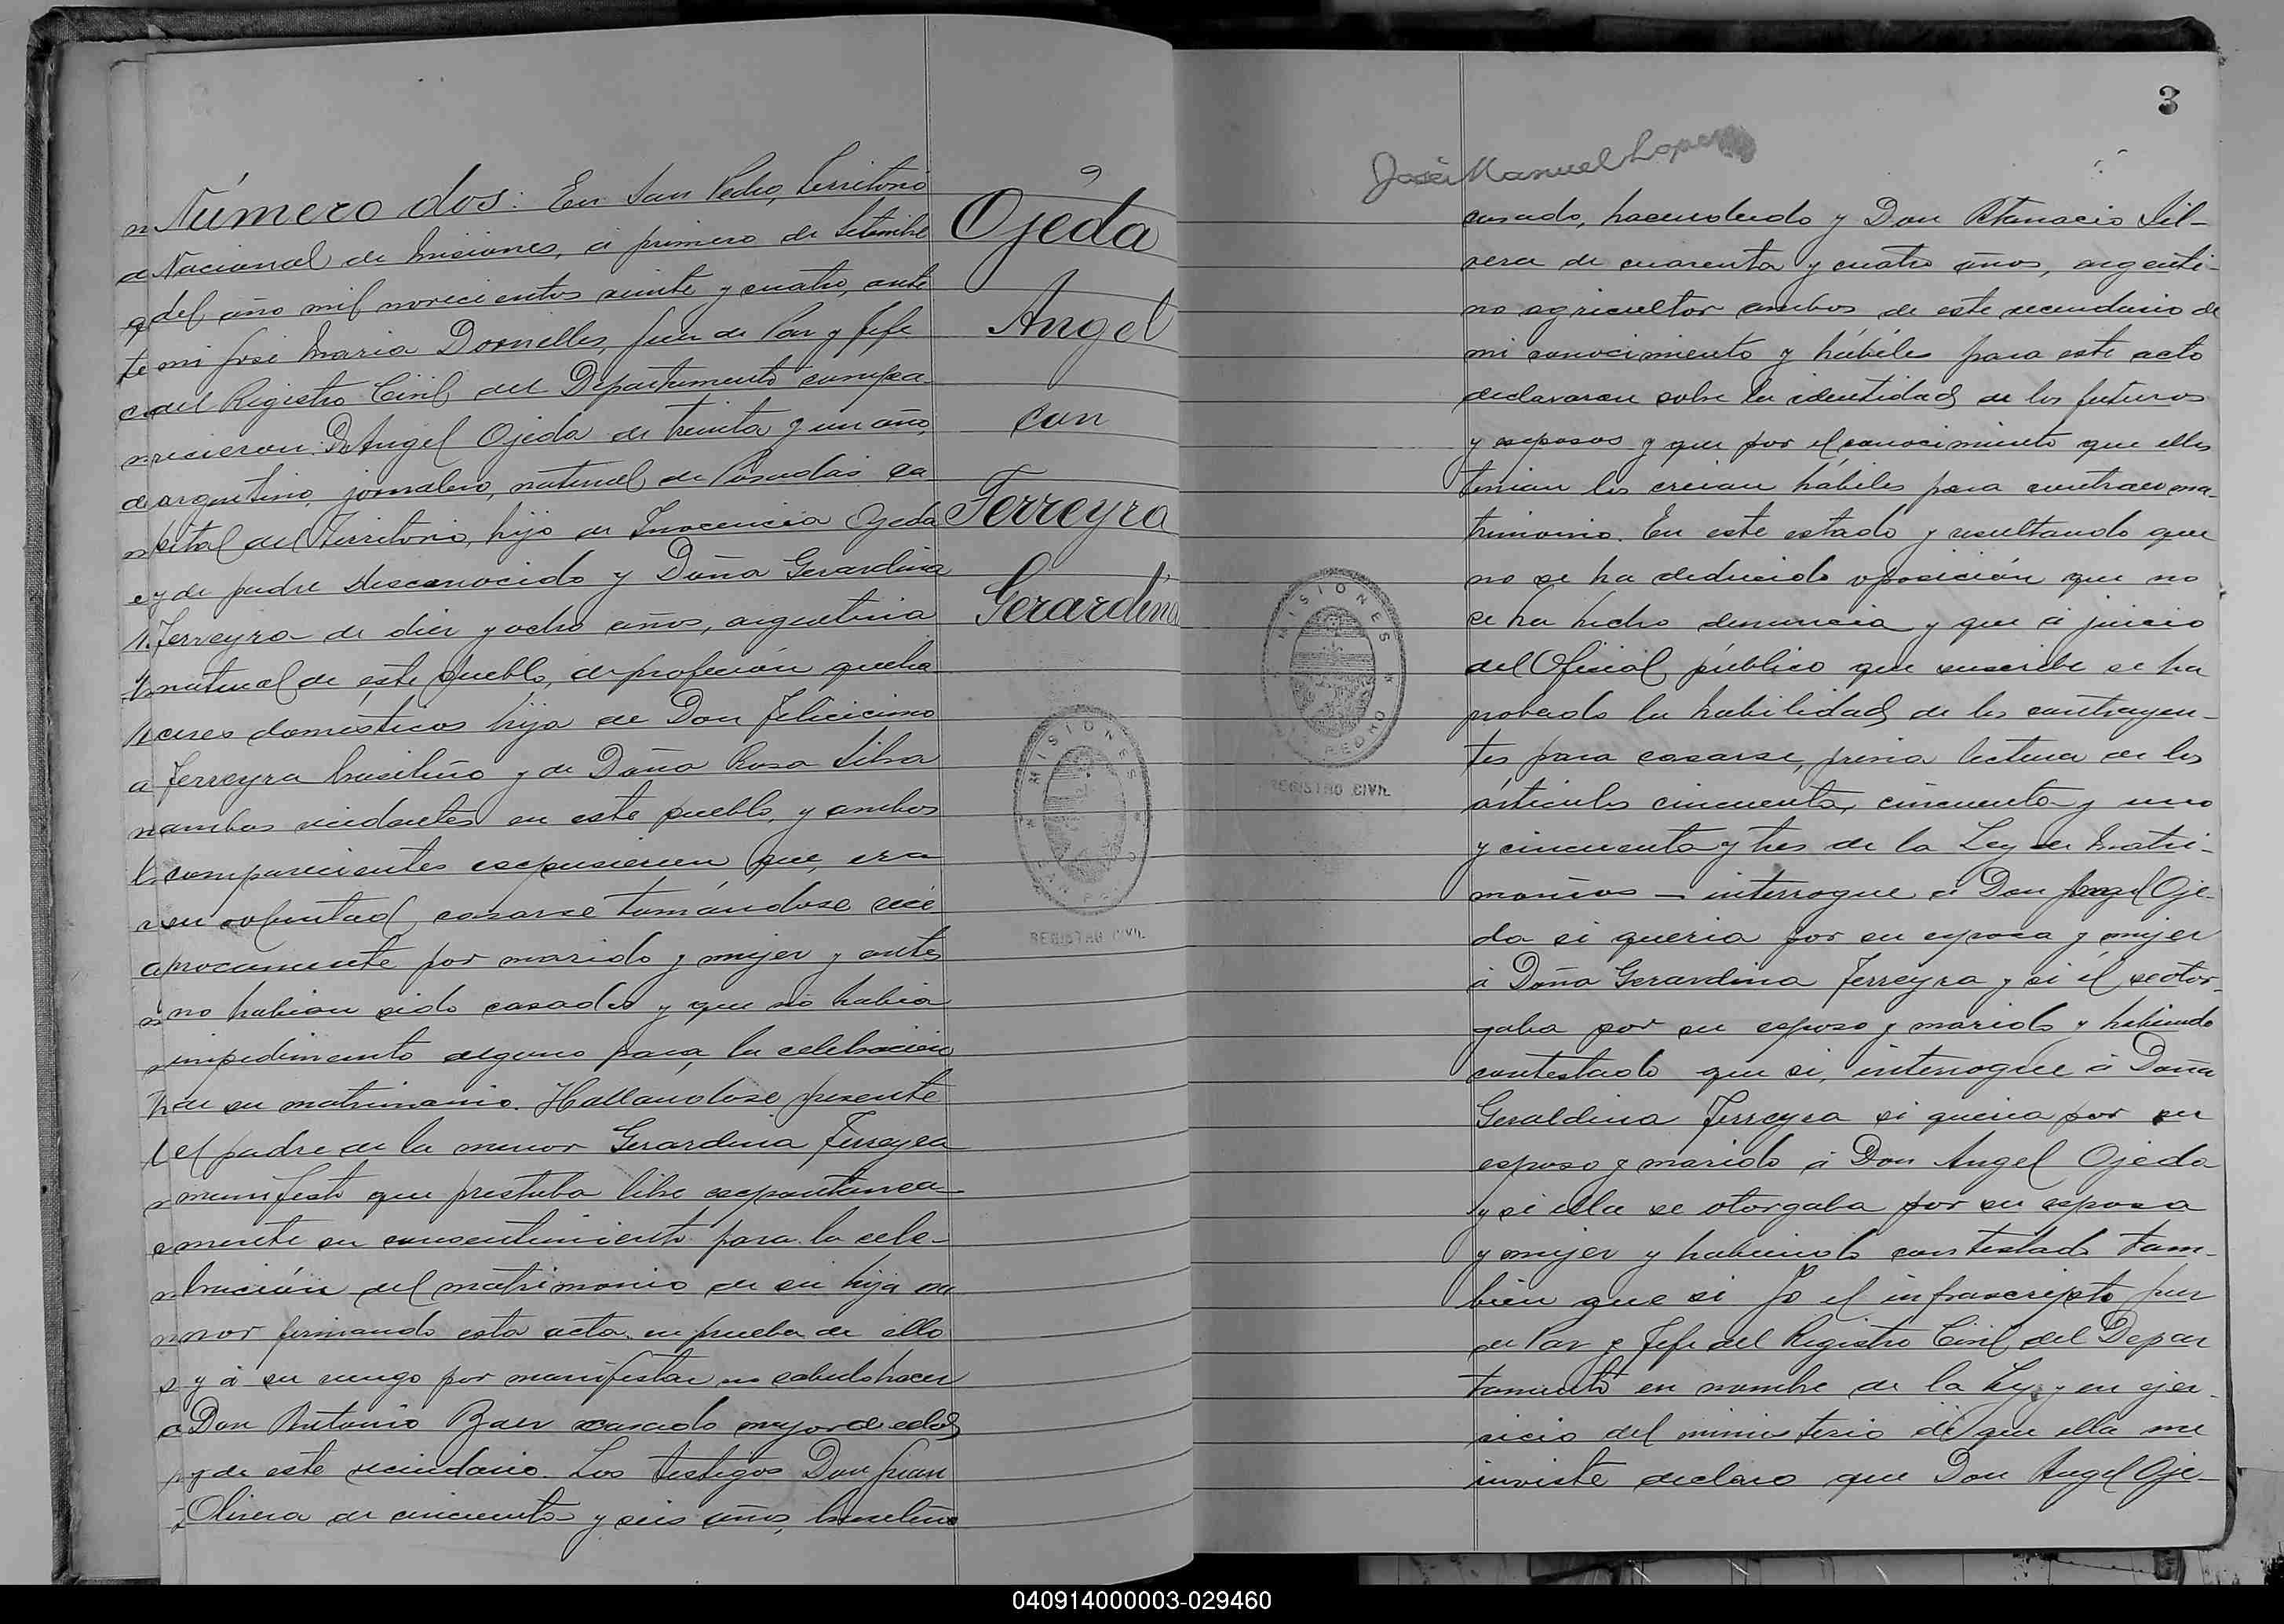 Número dos: En San Pedro, Territorio
Nacional de Misiones, á primero de Setiembre
del año mil novecientos veinte y cuatro, ante
mi José Maria Dornelles, Juez de Paz y Jefe
del Registro Civil del Departamento compa-
recieron: Dn Angel Ojeda de treinta y un año,
argentino, jornalero, natural de Posadas ca-
pital del Territorio, hijo de Inocencia Ojeda
y de padre desconocido y Doña Gerardina
Ferreyra de diez y ocho años, argentina
natural de este pueblo, de profesión queha
ceres domésticos hija de Don Feliciciano
Ferreyra brasileño y de Doña Rosa Silva
ambos residentes en este pueblo, y ambos
comparecientes expusieron que, era
su voluntad casarse tomándose recí
procamente por marido y mujer y antes
no habian sido casados y que no habia
impedimento alguno para la celebracion
de su matrimonio. Hallandose presente
el padre de la menor Gerardina Ferreyra
manifestó que prestaba libre espontanea-
mente su consentimiento para la cele-
bración del matrimonio de su hija me
nor firmando esta acta en prueba de ello
y á su ruego por manifestar no saberlo hacer
Don Antonio Baez casado mayor de edad
y de este vecindario. Los testigos Don Juan
Olivera de cincuenta y seis años, brasileño
Ojeda
Angel
con
Ferreyra
Gerardina
MISIONES
SAN PEDRO
REGISTRO CIVIL
3
José Manuel Lopez
casado, hacendado y Don Atanacio Sil-
vera de cuarenta y cuatro años, argenti-
no agricultor ambos de este vecindario de
mi conocimiento y hábiles para este acto
declararon sobre la identidad de los futuros
y esposos y que por el conocimiento que ellos
tenian los creian hábiles para contraer ma-
trimonio. En este estado y resultando que
no se ha deducido oposición que no
se ha hecho denuncia y que á juicio
del Oficial público que suscribe se ha
probado la habilidad de los contrayen-
tes para casarse, previa lectura de los
artículos cincuenta, cincuenta y uno
y cincuenta y tres de la Ley de Matri-
monios — interrogue á Don Angel Oje-
da si queria por su esposa y mujer
á Doña Gerardina Ferreyra y si él se otor-
gaba por su esposo y marido y habiendo
contestado que si, interrogue á Doña
Geraldina Ferreyra si queria por su
esposo y marido á Don Angel Ojeda
y si ella se otorgaba por su esposa
y mujer y habiendo contestado tam-
bien que si Yo el infrascripto Juez
de Paz y Jefe del Registro Civil del Depar
tamento en nombre de la Ley y en ejer-
cicio del ministerio de que ella me
inviste declaro que Don Angel Oje-
MISIONES
SAN PEDRO
REGISTRO CIVIL
040914000003-029460